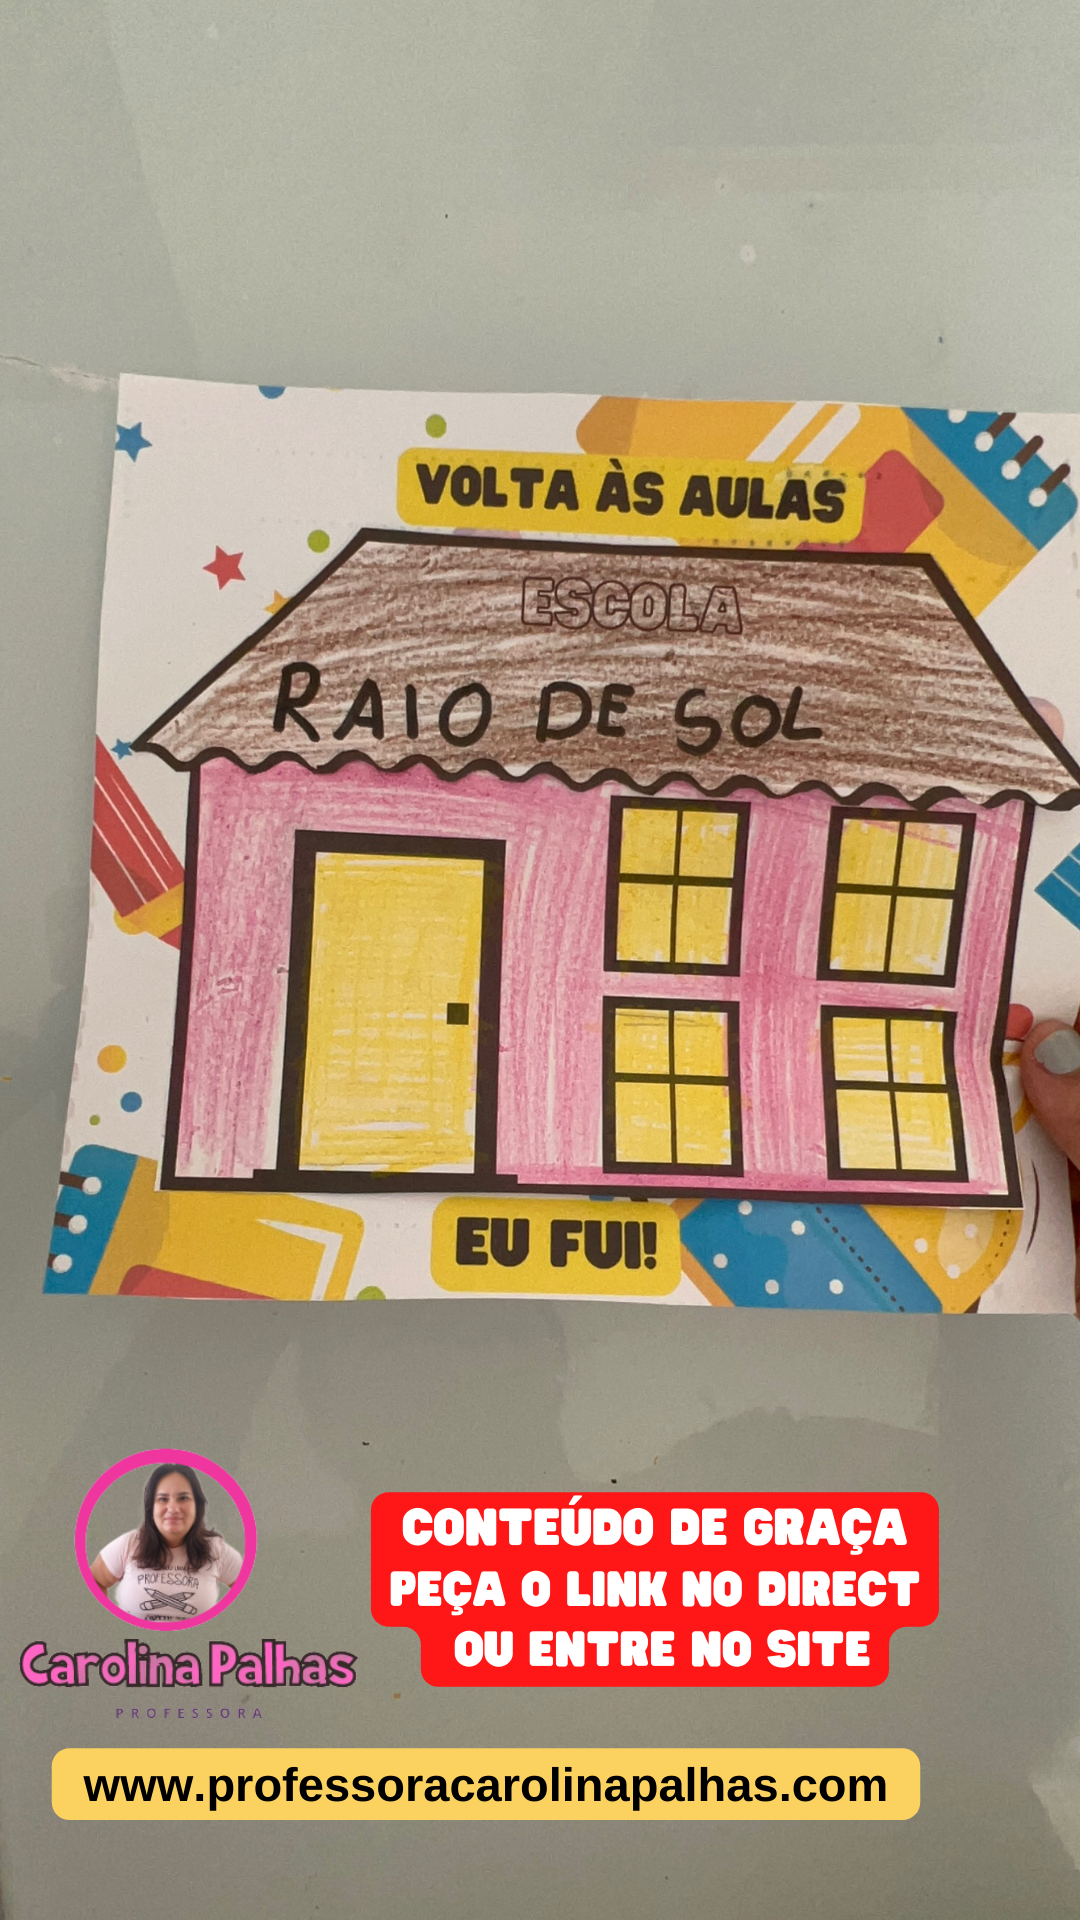 VOLTA ÀS AULAS
ESCOLA
RAIO DE SOL
EU FUI!
PROFESSORA
Carolina Palhas
PROFESSORA
CONTEÚDO DE GRAÇA
PEÇA O LINK NO DIRECT
OU ENTRE NO SITE
www.professoracarolinapalhas.com